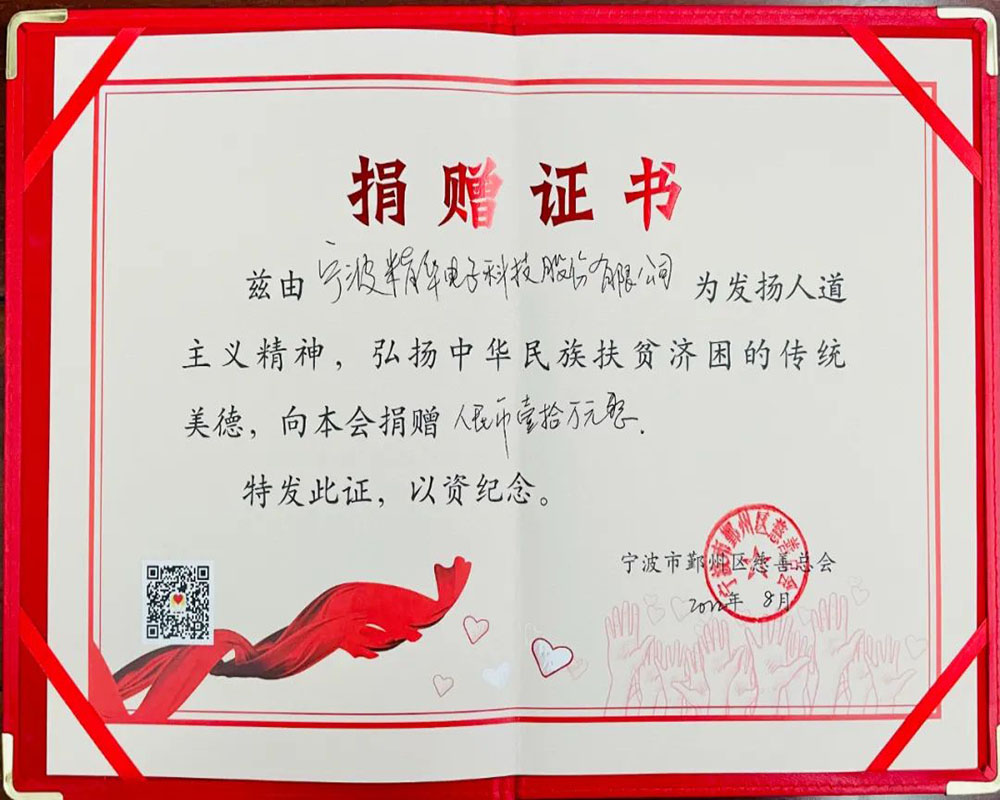 捐赠证书
兹由 宁波精华电子科技股份有限公司 为发扬人道
主义精神，弘扬中华民族扶贫济困的传统
美德，向本会捐赠 人民币壹拾万元整.
特发此证，以资纪念。
宁波市鄞州区慈善总会
2022年 8月
宁波市鄞州区慈善总会